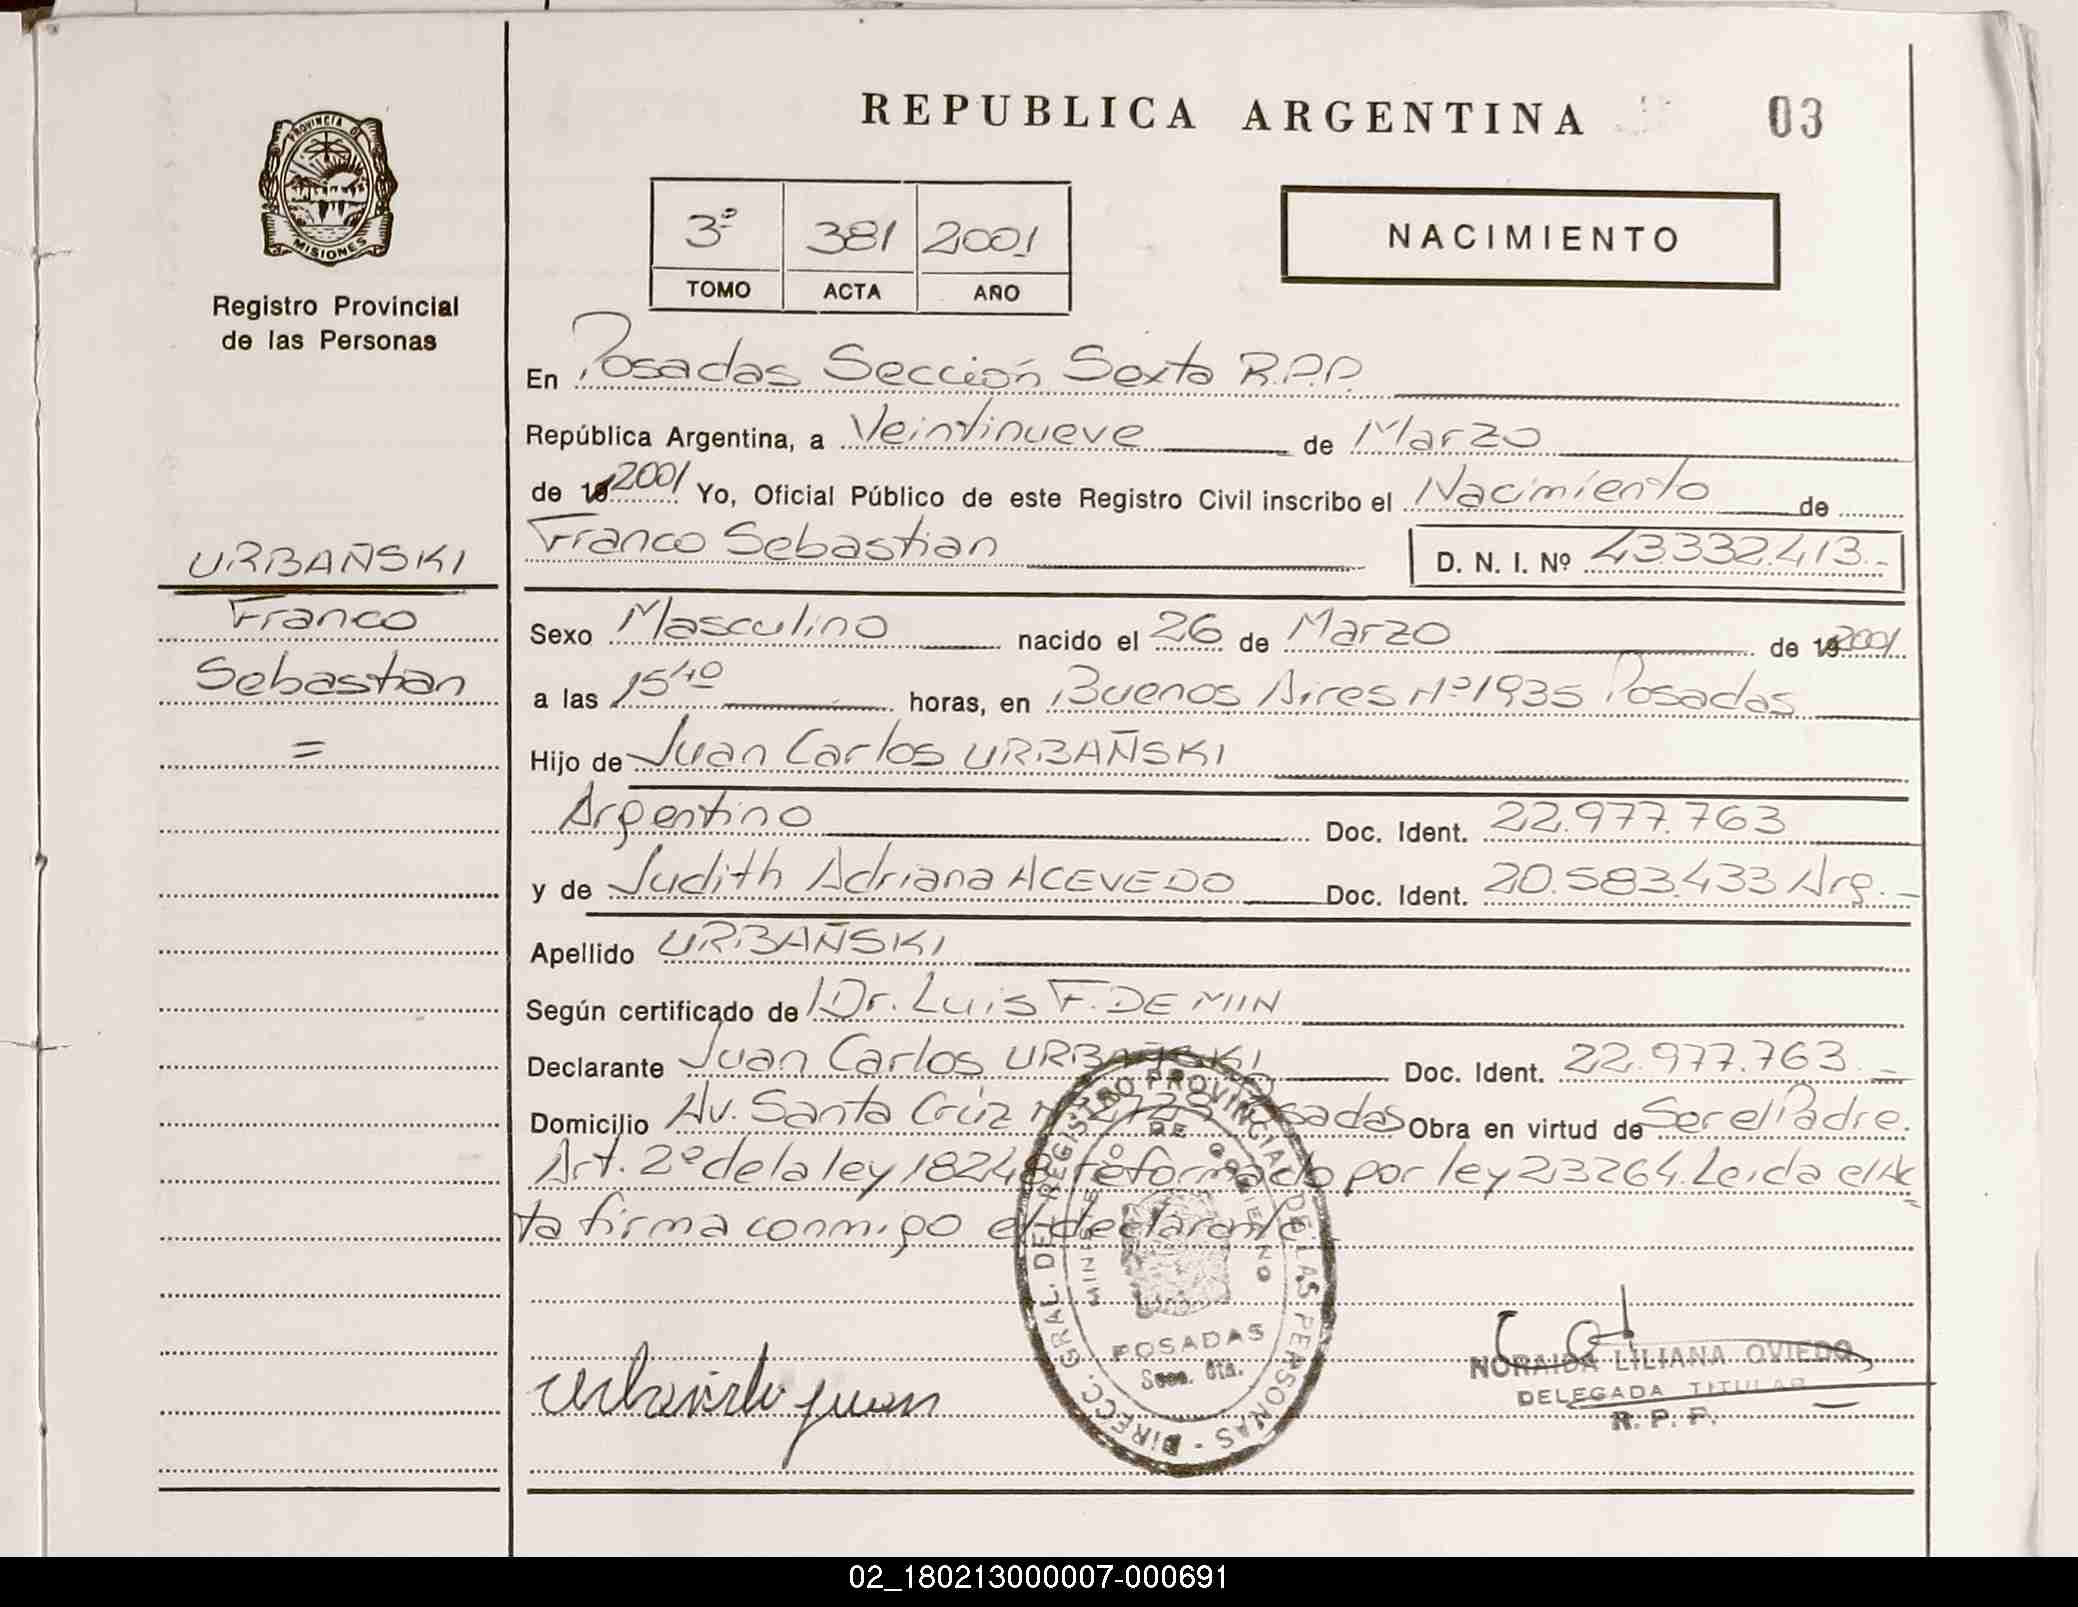 REPUBLICA ARGENTINA
03
PROVINCIA DE
MISIONES
Registro Provincial
de las Personas
3º 381 2001
TOMO ACTA AÑO
NACIMIENTO
En Posadas Sección Sexta R.P.P.
República Argentina, a Veintinueve de Marzo
de 2001 Yo, Oficial Público de este Registro Civil inscribo el Nacimiento de
Franco Sebastian D. N. I. Nº 43332.413.-
URBAÑSKI
Franco
Sebastian
=
Sexo Masculino nacido el 26 de Marzo de 2001
a las 15 40 horas, en Buenos Aires Nº 1935 Posadas
Hijo de Juan Carlos URBAÑSKI
Argentino Doc. Ident. 22.977.763
y de Judith Adriana ACEVEDO Doc. Ident. 20.583.433 Arg.-
Apellido URBAÑSKI
Según certificado de Dr. Luis F. DE MIIN
Declarante Juan Carlos URBAÑSKI Doc. Ident. 22.977.763.-
Domicilio Av. Santa Crúz Nº Posadas Obra en virtud de Ser el Padre.
Art. 2º de la ley 18248 reformado por ley 23264. Leida el Ac
ta firma conmigo el declarante.
DIRECC. GRAL. DEL REGISTRO PROVINCIAL DE LAS PERSONAS
DE GOBIERNO
POSADAS
Secc. 6ta.
juan
NORAIDA LILIANA OVIEDO
DELEGADA TITULAR
R. P. P.
02_180213000007-000691